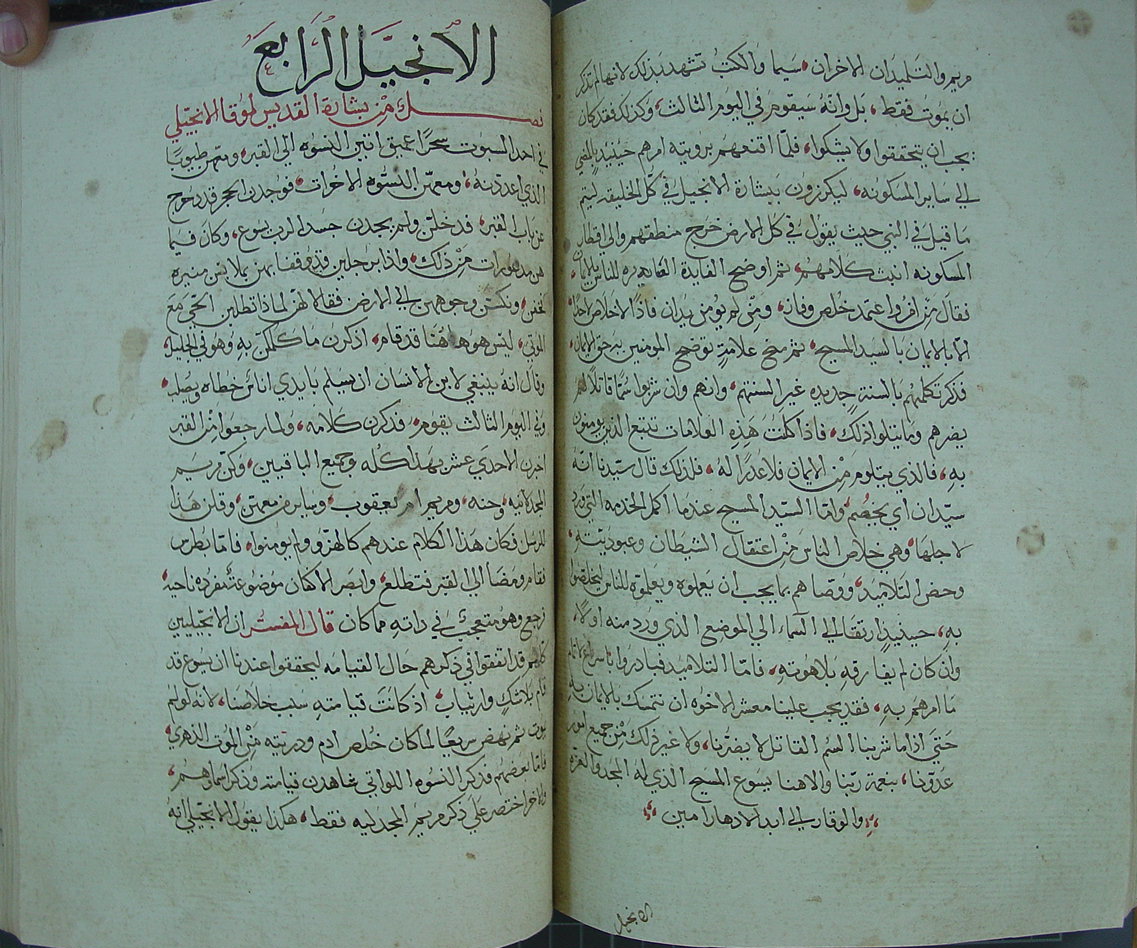 مريم والتلميدان الاخران سيما والكتب تشهد بذلك لانها لم تذكر
ان يموت فقط بل وانه سيقوم في اليوم الثالث وكذلك فقد كان
يجب ان يتحققوا ولا يشكوا فلما اقنعهم برويته امرهم حينيد بالمضي
الي ساير المسكونه ليكرزون ببشارة الانجيل في كل الخليقه ليتم
ما قيل في النبي حيث يقول في كل الارض خرج منطقهم والي اقطار
المسكونه انبت كلامهم ثم اوضح الفايدة للناس بالايمان
فقال من امن واعتمد خلص ومن لم يومن يدان فاذا لا خلاص لاحد
الا بالايمان بالسيد المسيح ثم منح علامة توضح المومنين به حق الايمان
فذكر تكلمهم بالسنة جديده غير السنتهم وانهم وان شربوا سما قاتلا لم
يضرهم وما يتلوا ذلك فاذا كلت هذه العلامات تتبع الذين يومنون
به فالذي يتلوم من الايمان فلا عذرا له فلذلك قال سيدنا انه
سيدان اي يخصم واما السيد المسيح عندما اكمل الخدمه التي ورد
لاجلها وهي خلاص الناس من اعتقال الشيطان وعبوديته
وحض التلاميد ووصاهم بما يجب ان يعملوه ويعلموه للناس ليخلصوا
به حينيذ ارتقا الي السماء الي الموضع الذي ورد منه اولا
وان كان لم يفارقه بلاهوته فاما التلاميد فبادروا باسراع لاتمام
ما امرهم به فقد يجب علينا معشر الاخوه ان نتمسك بالايمان به
حتي اذا ما شربنا السم القاتل لا يضرنا ولا غير ذلك من جميع امور
عدونا بنعمة ربنا والاهنا يسوع المسيح الذي له المجد والعزه
والوقار الي ابد الادهار امين
الانجيل
الانجيل الرابع
فصل من بشارة القديس لوقا الانجيلي
في احد السبوت سحرا عميق اتين النسوه الي القبر ومعهن طيوبا
الذي اعددنه ومعهن النسوه الاخرات فوجدن الحجر قد دحرج
عن باب القبر فدخلن ولم يجدن جسد الرب يسوع وكان فيما
هن مدهورات من ذلك واذا برجلين قد وقفا بهن بملابس منيره
فخفن ونكسن وجوههن الي الارض فقالا لهن لماذا تطلبن الحي مع
الموتي ليس هو هاهنا قد قام اذكرن ما كلمكن به وهو في الجليل
وقال انه ينبغي لابن الانسان ان يسلم بايدي اناس خطاه ويصلب
وفي اليوم الثالث يقوم فذكرن كلامه ولما رجعوا من القبر
اخبرن الاحدي عشر بهذا كله وجميع الباقيين وكن مريم
المجدلانيه وحنه ومريم ام يعقوب وساير من معهن وقلن هذا
للرسل فكان هذا الكلام عندهم كالهزو ولم يومنوا فاما بطرس
فقام ومضا الي القبر فتطلع وابصر الاكفان موضوعة مفرده ناحيه
فرجع وهو متعجب في ذاته مما كان قال المفسر ان الانجيليين
كلهم قد اتفقوا في ذكرهم حال القيامه ليحققوا عندنا ان يسوع قد
قام بلا شك ولا رتياب اذ كانت قيامته سبب خلاصنا لانه لو لم
يموت ثم نهض سريعا لما كان خلص ادم وذريته من الموت الدهري
فاما بعضهم فذكر النسوه اللواتي شاهدن قيامته وذكر اسماوهم
والاخر اختصر علي ذكر مريم المجدليه فقط هكذا يقول الانجيلي انه